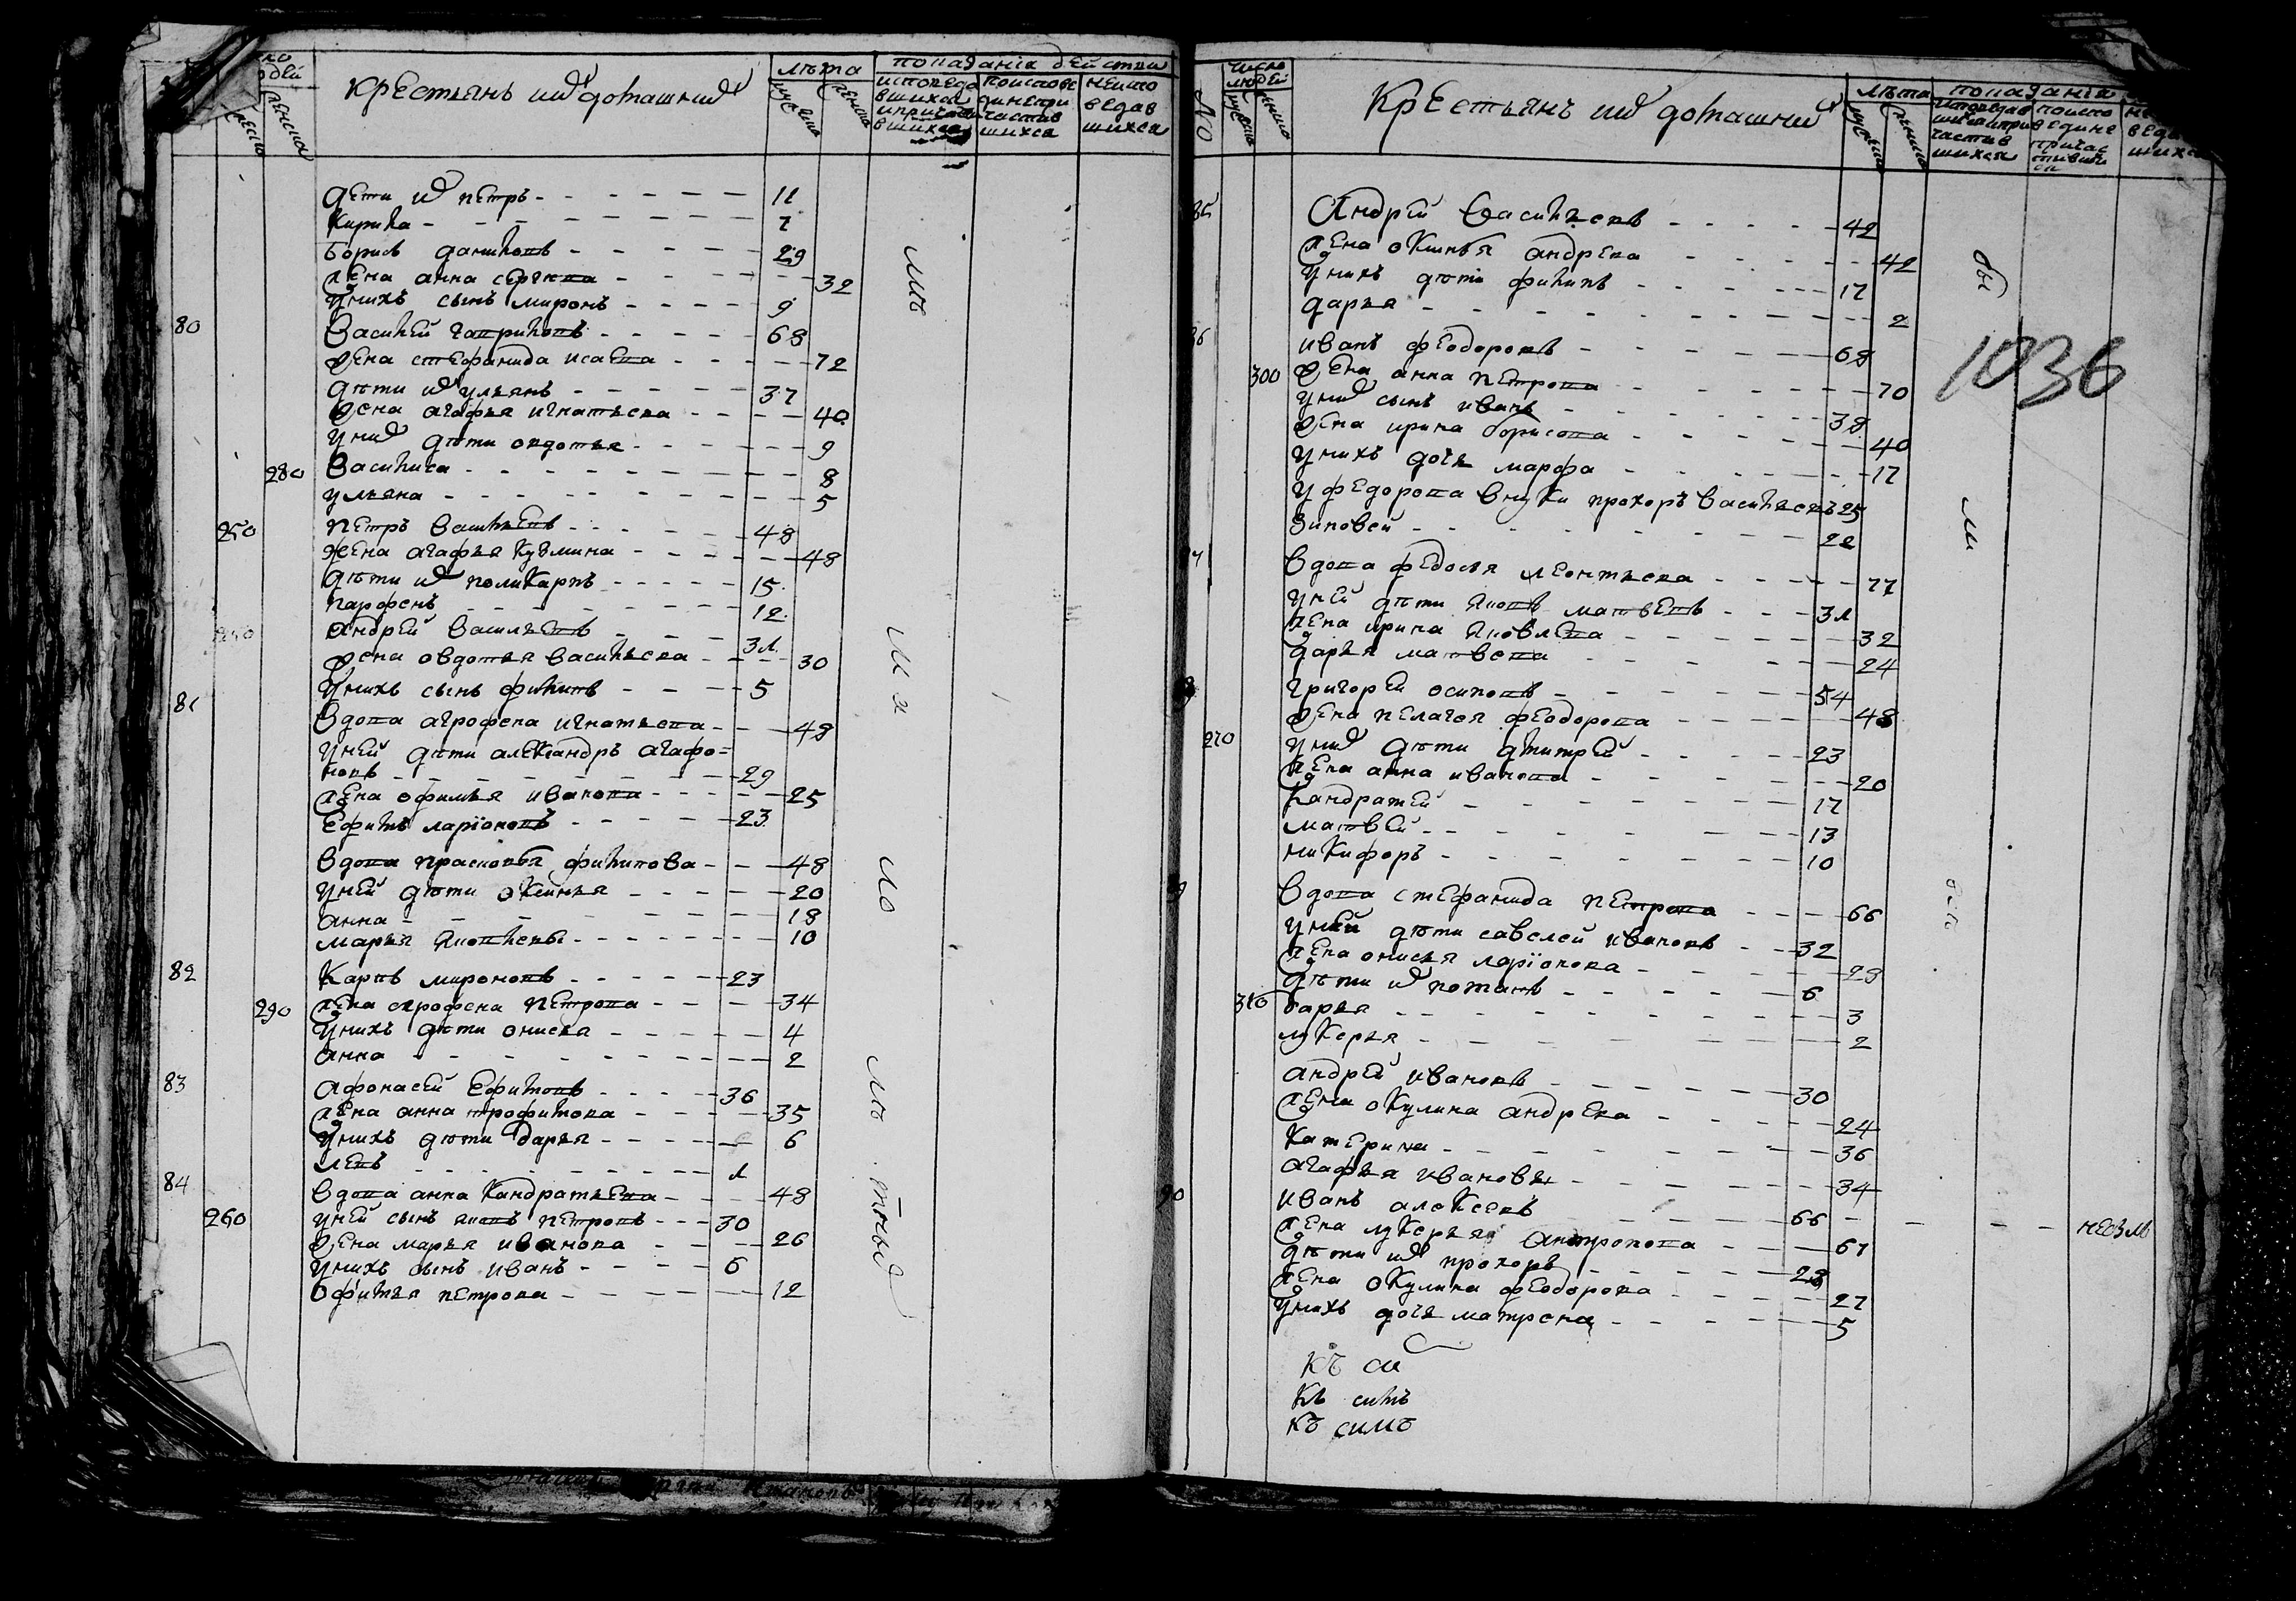 крестьянъ ихъ домашнихъ
лѣта
показанїя действи
исповеда
вшихся
и причасти
вшихся
поиспове
динепри
частив
шихся
неиспо
ведав
шихся
дети ихъ петръ 11
Кирила 7
Борисъ даниловъ 29
жена анна сергеева 32
у нихъ сынъ миронъ 9
80 Василей гавриловъ 68
жена стефанида исаева 72
дѣти ихъ ульянъ 37
жена агафья игнатьева 40
у нихъ дѣти овдотья 9
280 Василиса 8
ульяна 5
250 петръ Васильевъ 48
жена агафья Кузмина 48
дѣти ихъ поликарпъ 15
парфенъ 12
андрей Васильевъ 31
жена овдотья Васильева 30
у нихъ сынъ филипъ 5
81 Вдова агрофена игнатьева 48
у ней дѣти александръ агафо=
новъ 29
жена офимья иванова 25
Ефимъ ларїоновъ 23
Вдова прасковья филипова 48
у ней дѣти оксинья 20
анна 18
марья яковлевы 10
82 Карпъ мироновъ 23
290 жена огрофена петрова 34
у нихъ дѣти онисья 4
анна 2
83 афонасей Ефимовъ 36
жена анна трофимова 35
у нихъ дѣти дарья 6
левъ 1
84 Вдова анна Кандратьева 48
260 у ней сынъ яковъ петровъ 30
жена марья иванова 26
у нихъ сынъ иванъ 6
офимья петрова 12
№
число
людей
Крестьянъ ихъ домашнихъ
лѣта
показанїя
85 Андрей Васильевъ 42
жена оксинья андреева 42
у нихъ дѣти филипъ 17
дарья 2
86 иванъ феодоровъ 68
300 жена анна петрова 70
у нихъ сынъ иванъ 38
жена ирина борисова 40
у нихъ дочь марфа 17
у федорова внуки прохоръ Васильевъ 25
Зиновей 22
Вдова федосья леонтьева 77
у ней дѣти яковъ матвеевъ 31
жена ирина яковлева 32
дарья матвеева 24
григорей осиповъ 54
жена пелагея феодорова 48
270 у нихъ дѣти дмитрей 23
жена анна иванова 20
Кандратей 17
матвей 13
никифоръ 10
Вдова стефанида петрова 66
у ней дѣти савелей ивановъ 32
жена онисья ларїонова 28
дѣти ихъ потапъ 6
310 дарья 3
лукерья 2
андрей ивановъ 30
жена окулина андреева 24
Катерина 36
агафья ивановы 34
90 иванъ алексеевъ 66
жена лукерья антропова 67
дѣти ихъ прохоръ 28
жена окулина феодорова 27
у нихъ дочь матрена 5
1036
къ си
къ симъ
къ симъ